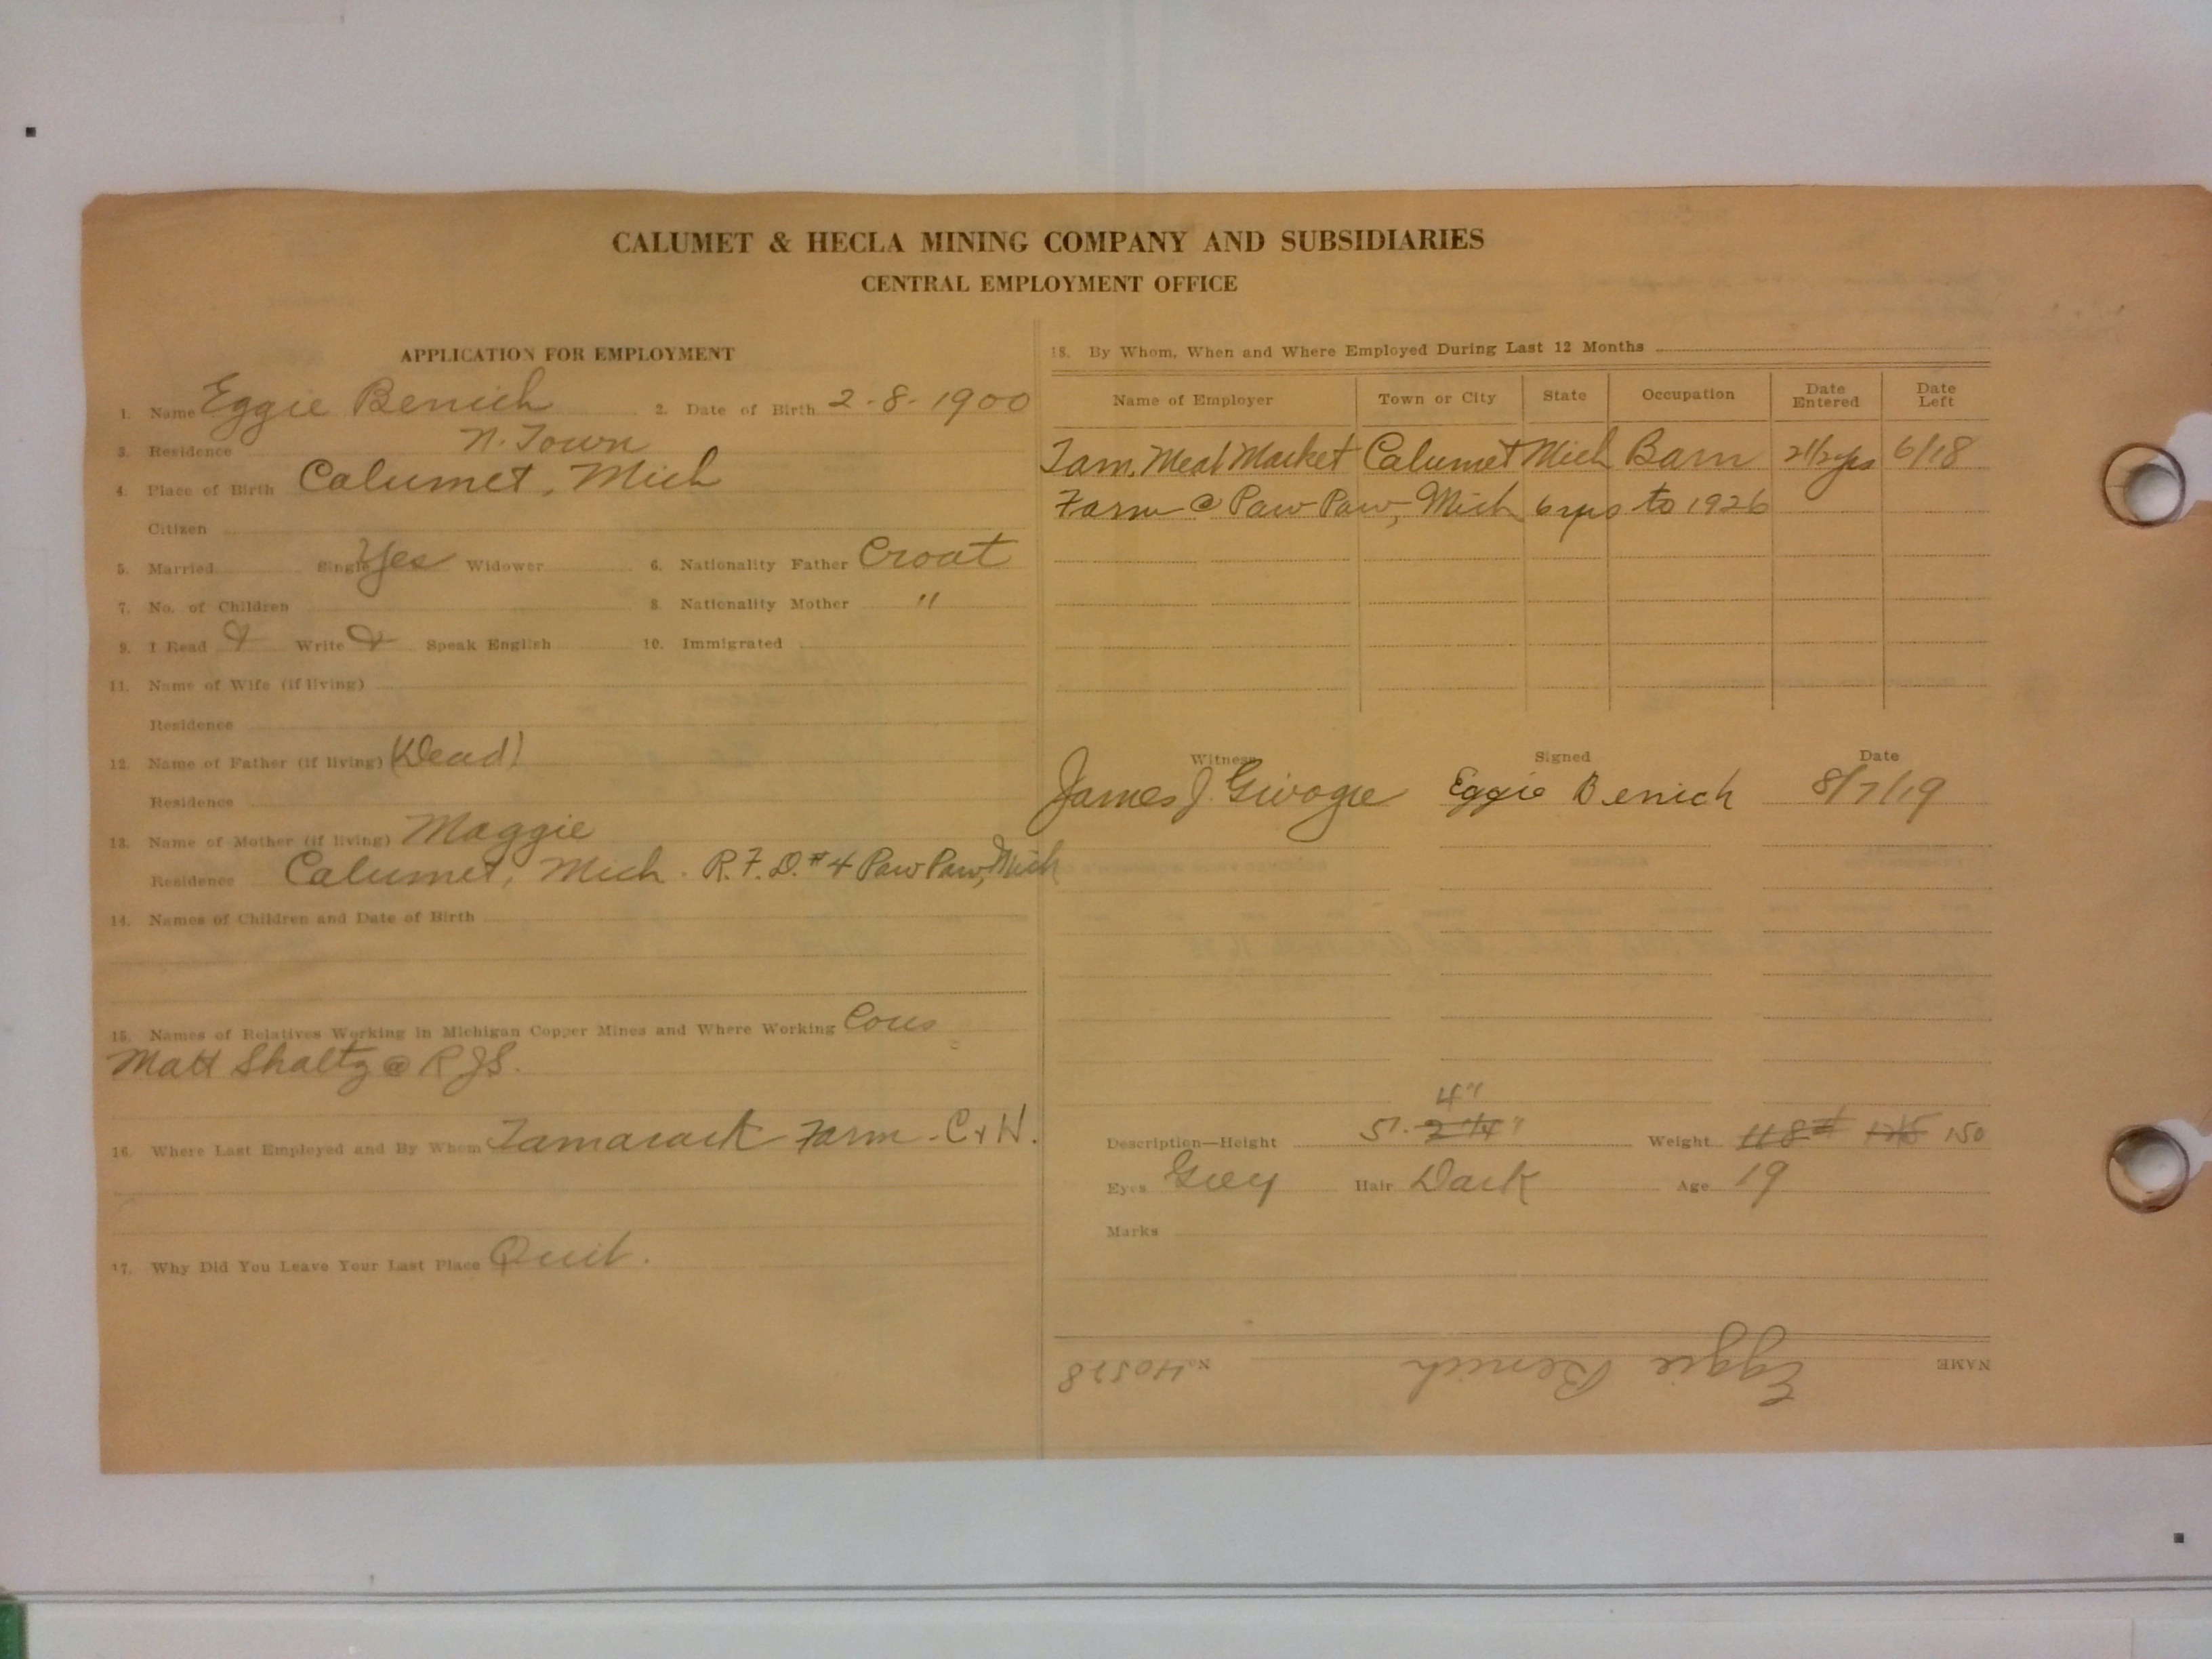 CALUMET & HECLA MINING COMPANY AND SUBSIDIARIES
CENTRAL EMPLOYMENT OFFICE
APPLICATION FOR EMPLOYMENT
1. Name Eggie Benich 2. Date of Birth 2-8-1900
3. Residence N. Town
4. Place of Birth Calumet, Mich
Citizen
5. Married Single Yes Widower 6. Nationality Father Croat
7. No. of Children 8. Nationality Mother "
9. I Read Write Speak English 10. Immigrated
11. Name of Wife (if living)
Residence
12. Name of Father (if living) (Dead)
Residence
13. Name of Mother (if living) Maggie
Residence Calumet, Mich. R.F.D. #4 Paw Paw, Mich
14. Names of Children and Date of Birth
15. Names of Relatives Working in Michigan Copper Mines and Where Working Cous
Matt Shaltz @ RJS.
16. Where Last Employed and By Whom Tamarack Farm - C & H.
17. Why Did You Leave Your Last Place Quit.
18. By Whom, When and Where Employed During Last 12 Months
Name of Employer Town or City State Occupation Date Entered Date Left
Tam. Meat Market Calumet Mich Barn 2 1/2 yrs 6/18
Farm @ Paw Paw, Mich 6 yrs to 1926
Witness Signed Date
James J. Eggie Benich 8/7/19
4"
Description—Height 5'. 2 1/4" Weight 118# 125 150
Eyes Grey Hair Dark Age 19
Marks
NAME Eggie Benich No. 40528